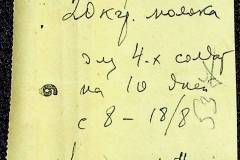 20 кгр. молока
для 4-х солдат
на 10 дней
с 8 – 18/8